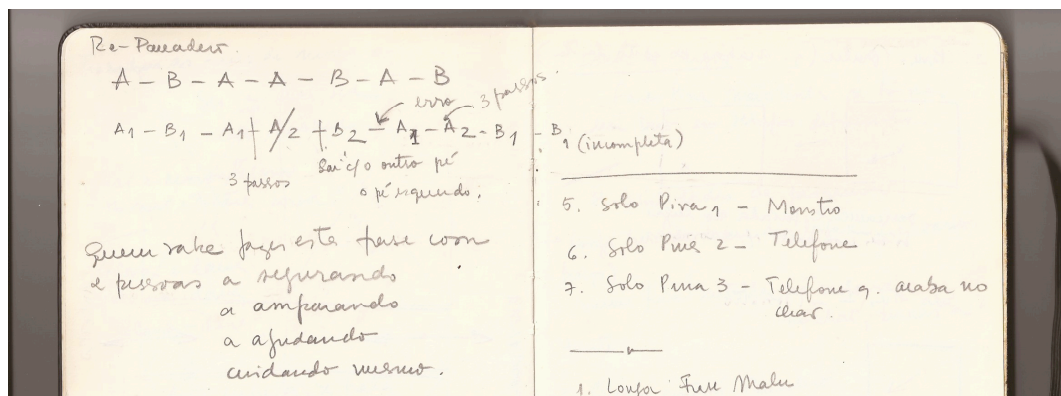 A – B – A – A – B – A – B
erro 3 passos.
A1 – B1 – A1 + A/2 + B2 – A1 – A2 - B1 – B1 (incompleta)
3 passos
Sai c/o outro pé
o pé esquerdo.
Quem sabe fazer esta frase com
2 pessoas a segurando
a amparando
a ajudando
cuidando mesmo.
5. Solo 1 – Monstro
6. Solo 2 – Telefone
7. Solo 3 – Telefone q. acaba no
chão.
1. Malu